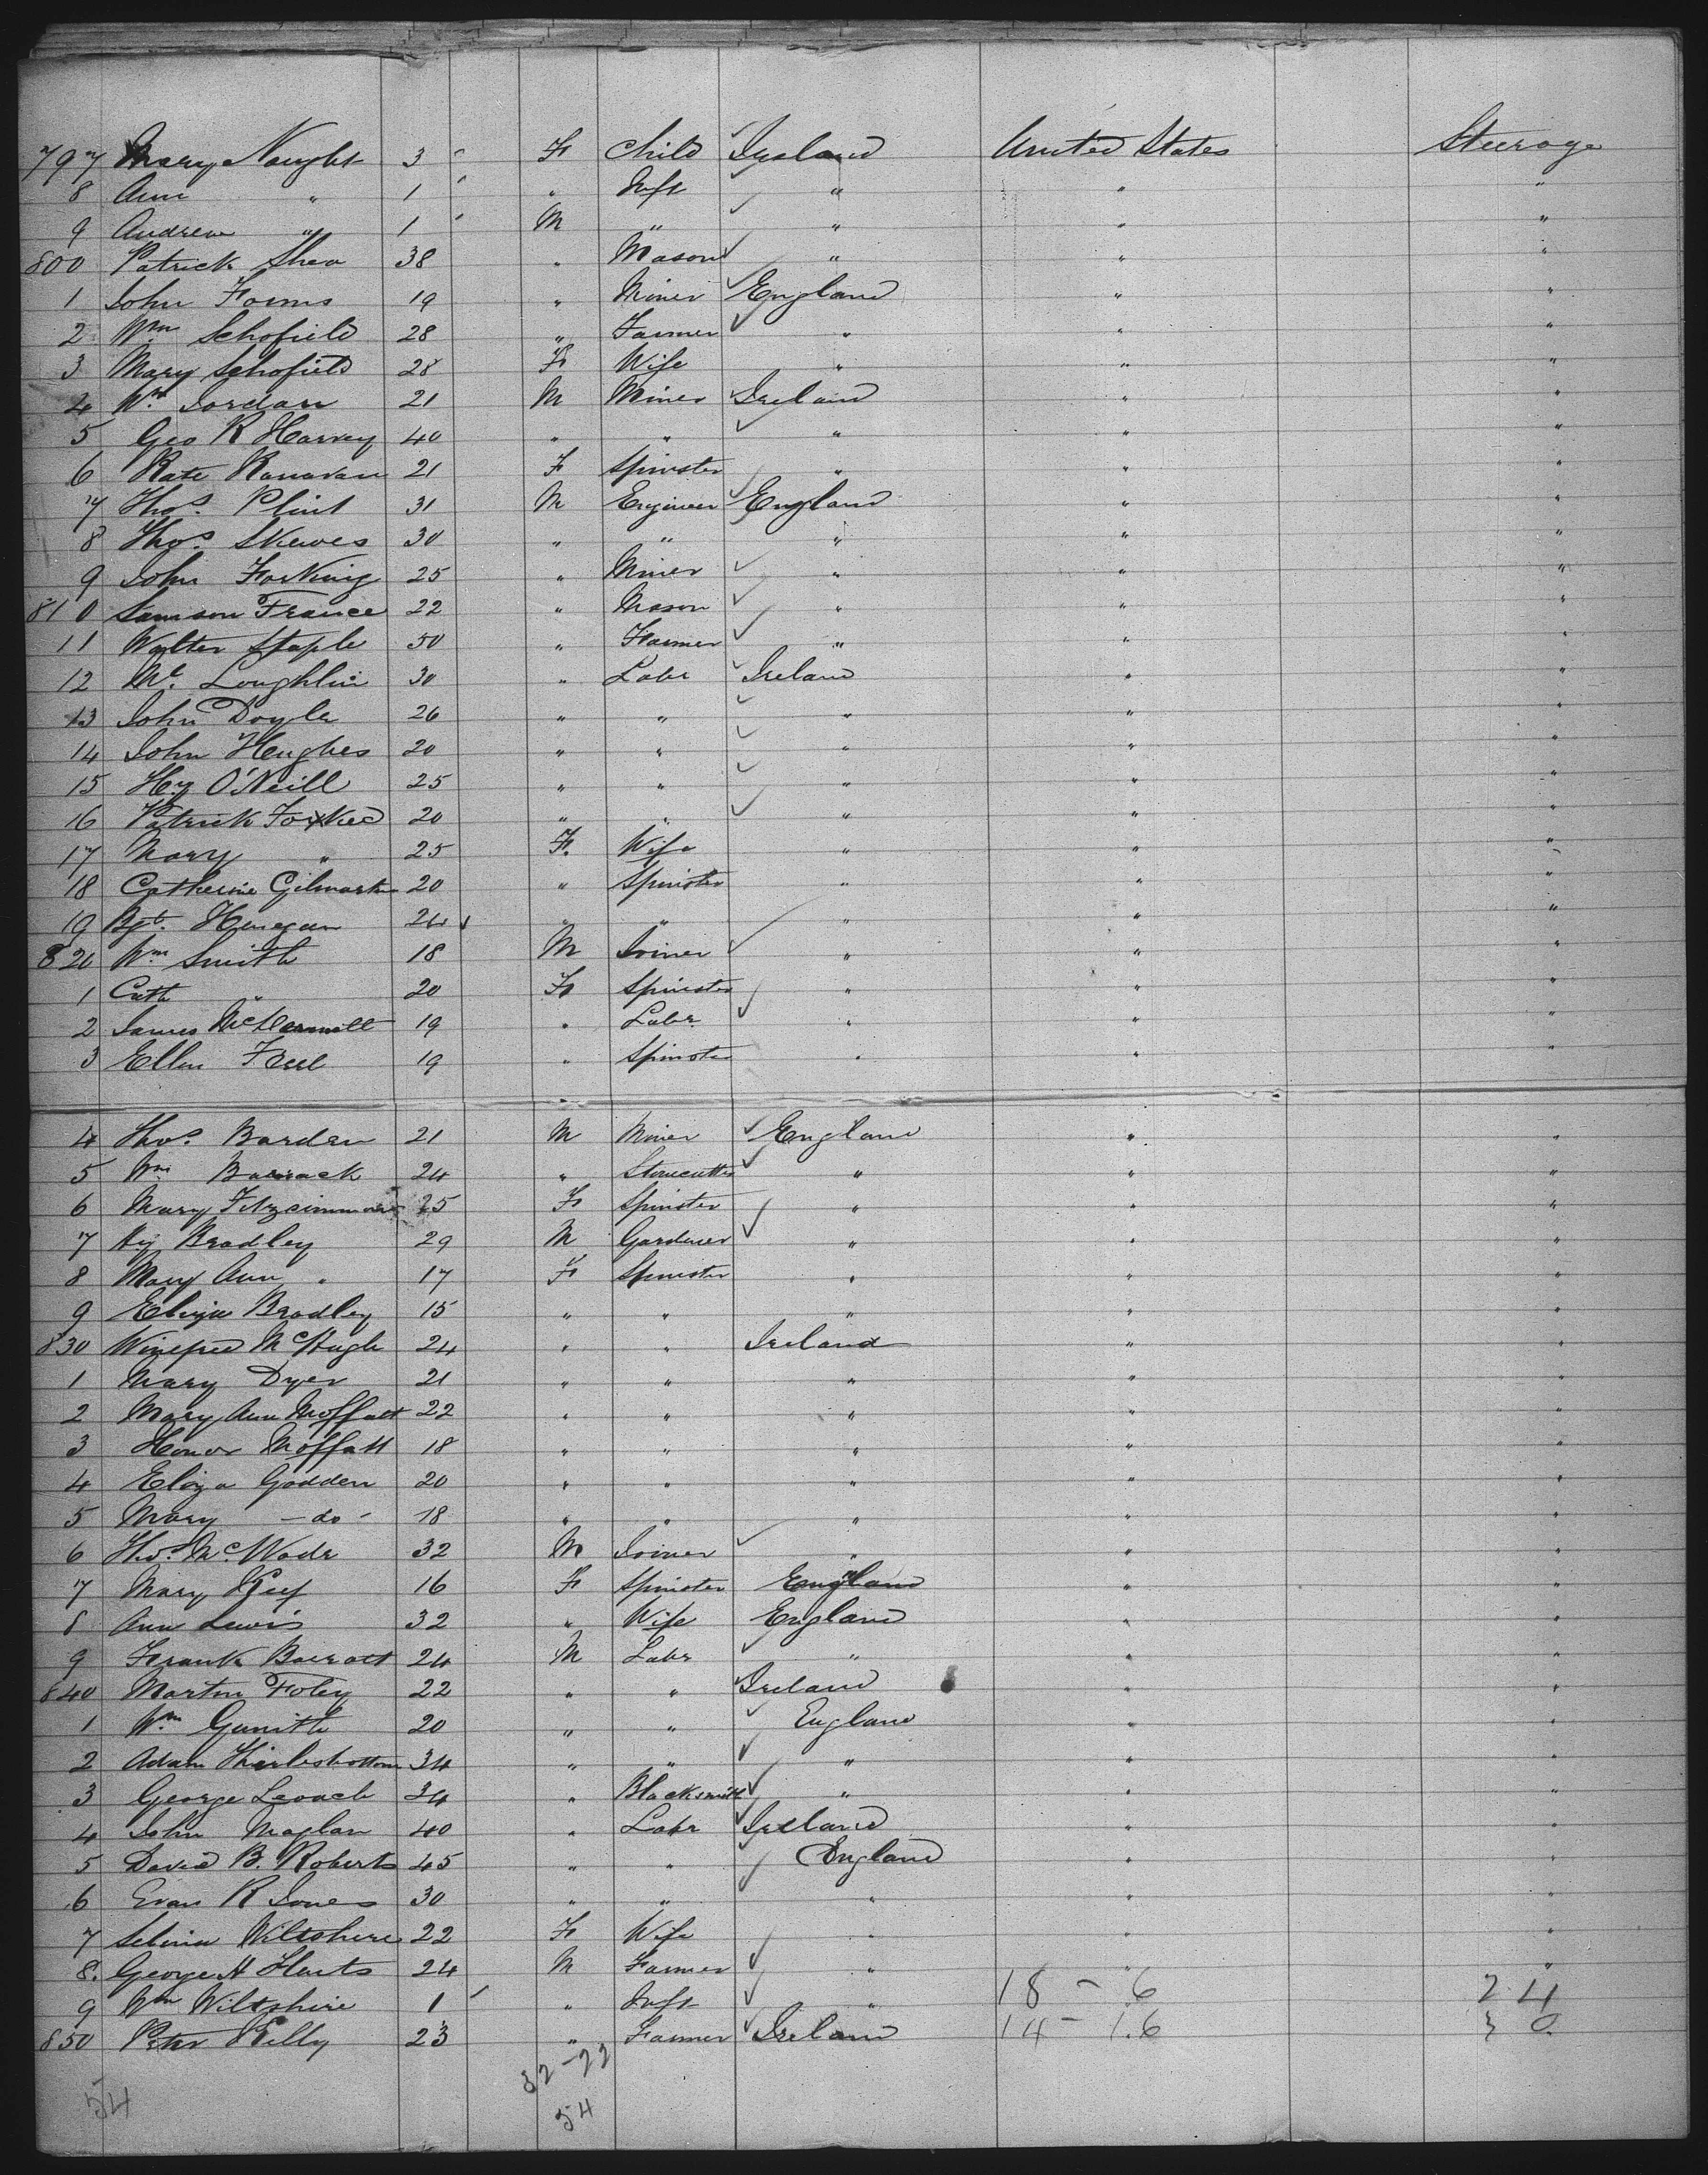 797 Mary Naught 3 F Child Ireland United States Steerage
8 Ann " 1 " Inft " " "
9 Andrew " 1 M " " " "
800 Patrick Shea 38 " Mason " " "
1 John Forms 19 " Miner England " "
2 Wm Schofield 28 " Farmer " " "
3 Mary Schofield 28 F Wife " " "
4 Wm Jordan 21 M Miner Ireland " "
5 Geo R Harvey 40 " " " " "
6 Kate Kanavan 21 F Spinster " " "
7 Thos. Plint 31 M Engineer England " "
8 Thos. Skewes 30 " " " " "
9 John 25 " Miner " " "
810 Samson France 22 " Mason " " "
11 Walter Staple 50 " Farmer " " "
12 Mc. Loughlin 30 " Labr Ireland " "
13 John Doyle 26 " " " " "
14 John Hughes 20 " " " " "
15 Hy O'Neill 25 " " " " "
16 Patrick 20 " " " " "
17 Mary " 25 F. Wife " " "
18 Catherine Gilmartin 20 " Spinster " " "
19 Bgt. Henegan 24 " " " " "
820 Wm Smith 18 M Joiner " " "
1 Cath " 20 F Spinster " " "
2 James McDermott 19 " Labr. " " "
3 Ellen Freel 19 " Spinster " " "
4 Thos. Barden 21 M Miner England " "
5 Wm Barrack 24 " Stonecutter " " "
6 Mary Fitzsimmons 25 F Spinster " " "
7 Hy Bradley 29 M Gardener " " "
8 Mary Ann " 17 F Spinster " " "
9 Eliza Bradley 15 " " " " "
830 Winefred McHugh 24 " " Ireland " "
1 Mary Dyer 21 " " " " "
2 Mary Ann Moffatt 22 " " " " "
3 Honor Moffatt 18 " " " " "
4 Eliza Godden 20 " " " " "
5 Mary - do - 18 " " " " "
6 Thos. Mc Wade 32 M Joiner " " "
7 Mary 16 F Spinster England " "
8 Ann Lewis 32 " Wife England " "
9 Frank Barratt 24 M Labr " " "
840 Martin Foley 22 " " Ireland " "
1 Wm 20 " " England " "
2 Adam 34 " " " " "
3 George Leach 34 " Blacksmith " " "
4 John 40 " Labr Ireland " "
5 David B. Roberts 45 " " England " "
6 Evan R Jones 30 " " " " "
7 Selina Wiltshire 22 F Wife " " "
8. George H Harts 24 M Farmer " " "
9 Wm Wiltshire 1 " Inft " 18 - 6 24
850 Peter Reilly 23 " Farmer Ireland 14 - 16 30
32 - 22
54 54